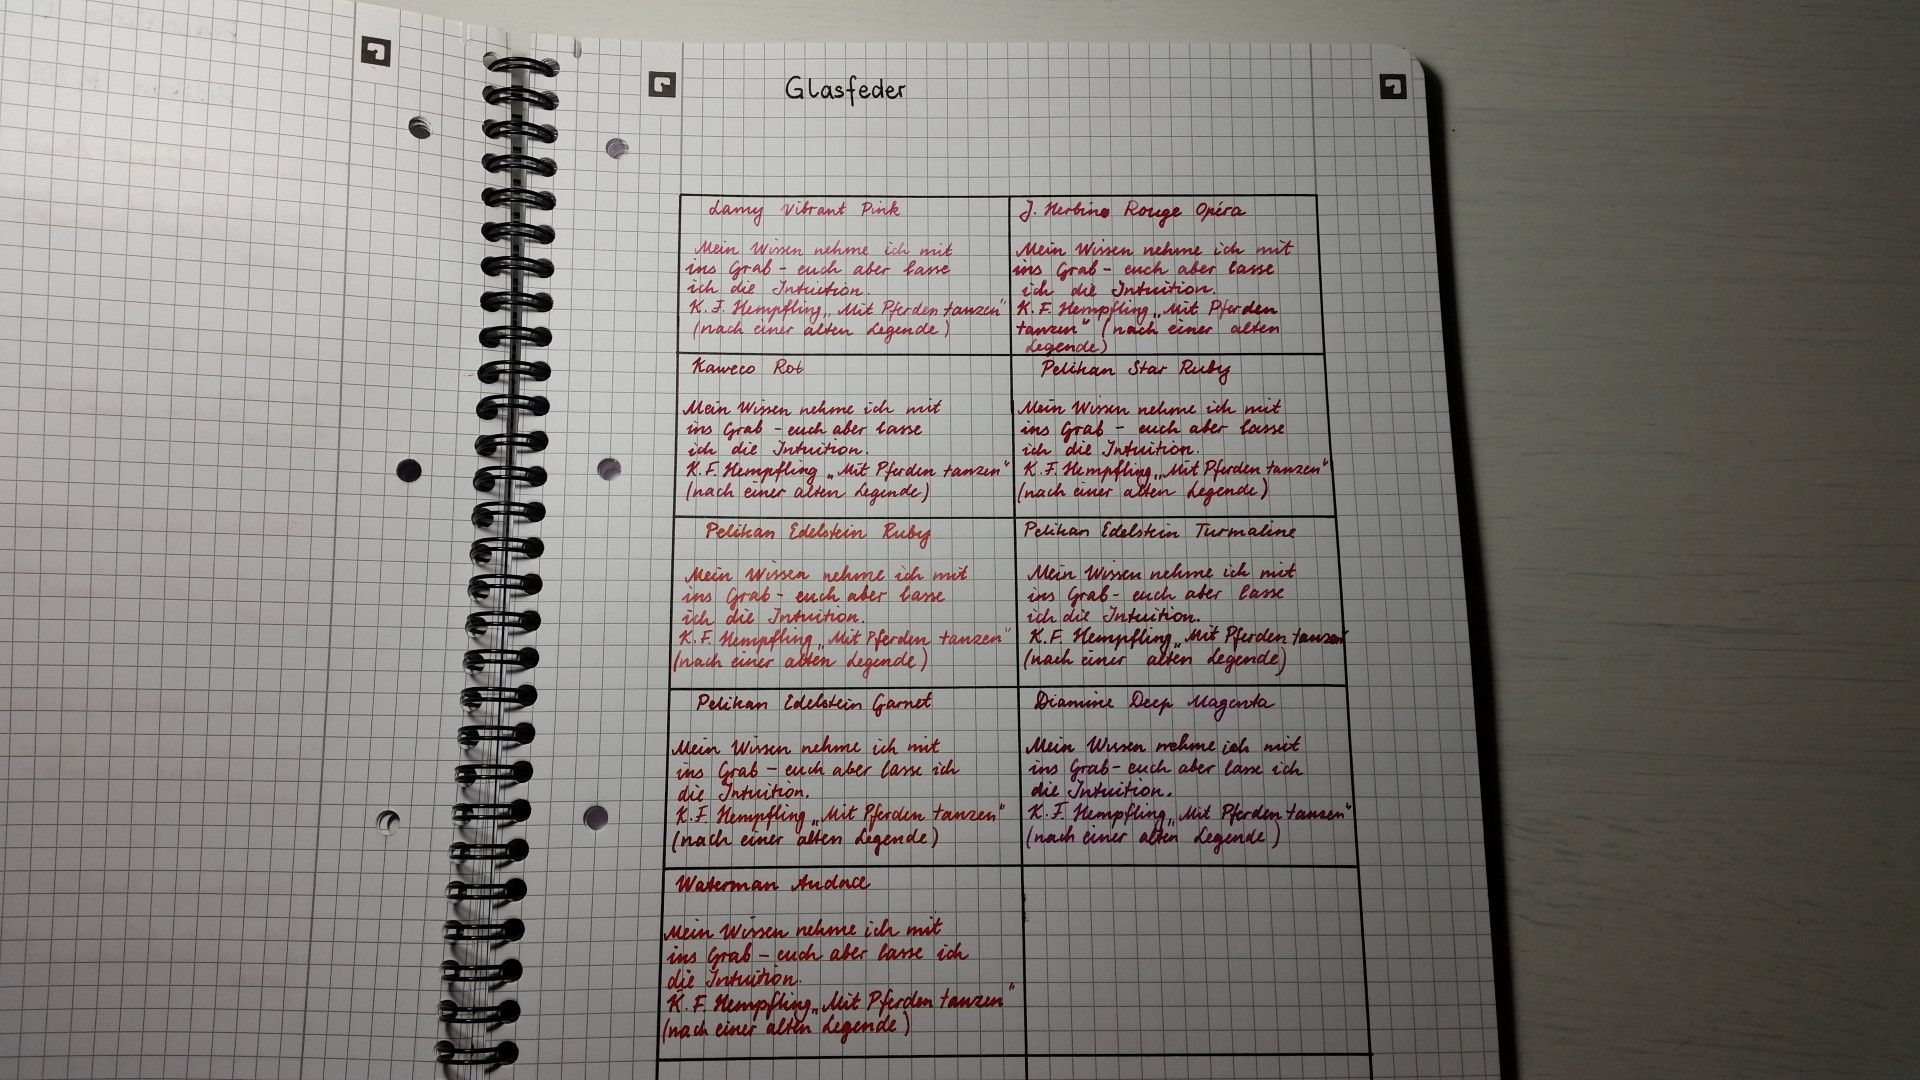 Glasfeder
Lamy Vibrant Pink
Mein Wissen nehme ich mit
ins Grab - euch aber lasse
ich die Intuition.
K. F. Hempfling „Mit Pferden tanzen"
(nach einer alten Legende)
J. Herbin Rouge Opéra
Mein Wissen nehme ich mit
ins Grab - euch aber lasse
ich die Intuition.
K. F. Hempfling „Mit Pferden
tanzen" (nach einer alten
Legende)
Kaweco Rot
Mein Wissen nehme ich mit
ins Grab - euch aber lasse
ich die Intuition.
K. F. Hempfling „Mit Pferden tanzen"
(nach einer alten Legende)
Pelikan Star Ruby
Mein Wissen nehme ich mit
ins Grab - euch aber lasse
ich die Intuition.
K. F. Hempfling „Mit Pferden tanzen"
(nach einer alten Legende)
Pelikan Edelstein Ruby
Mein Wissen nehme ich mit
ins Grab - euch aber lasse
ich die Intuition.
K. F. Hempfling „Mit Pferden tanzen"
(nach einer alten Legende)
Pelikan Edelstein Turmaline
Mein Wissen nehme ich mit
ins Grab - euch aber lasse
ich die Intuition.
K. F. Hempfling „Mit Pferden tanzen"
(nach einer alten Legende)
Pelikan Edelstein Garnet
Mein Wissen nehme ich mit
ins Grab - euch aber lasse ich
die Intuition.
K. F. Hempfling „Mit Pferden tanzen"
(nach einer alten Legende)
Diamine Deep Magenta
Mein Wissen nehme ich mit
ins Grab - euch aber lasse ich
die Intuition.
K. F. Hempfling „Mit Pferden tanzen"
(nach einer alten Legende)
Waterman Audace
Mein Wissen nehme ich mit
ins Grab - euch aber lasse ich
die Intuition.
K. F. Hempfling „Mit Pferden tanzen"
(nach einer alten Legende)